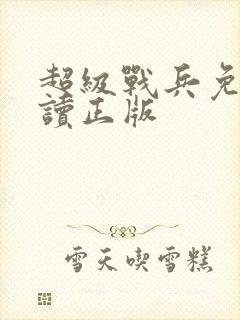 超級戰兵免
讀正版
雪天喫雪糕